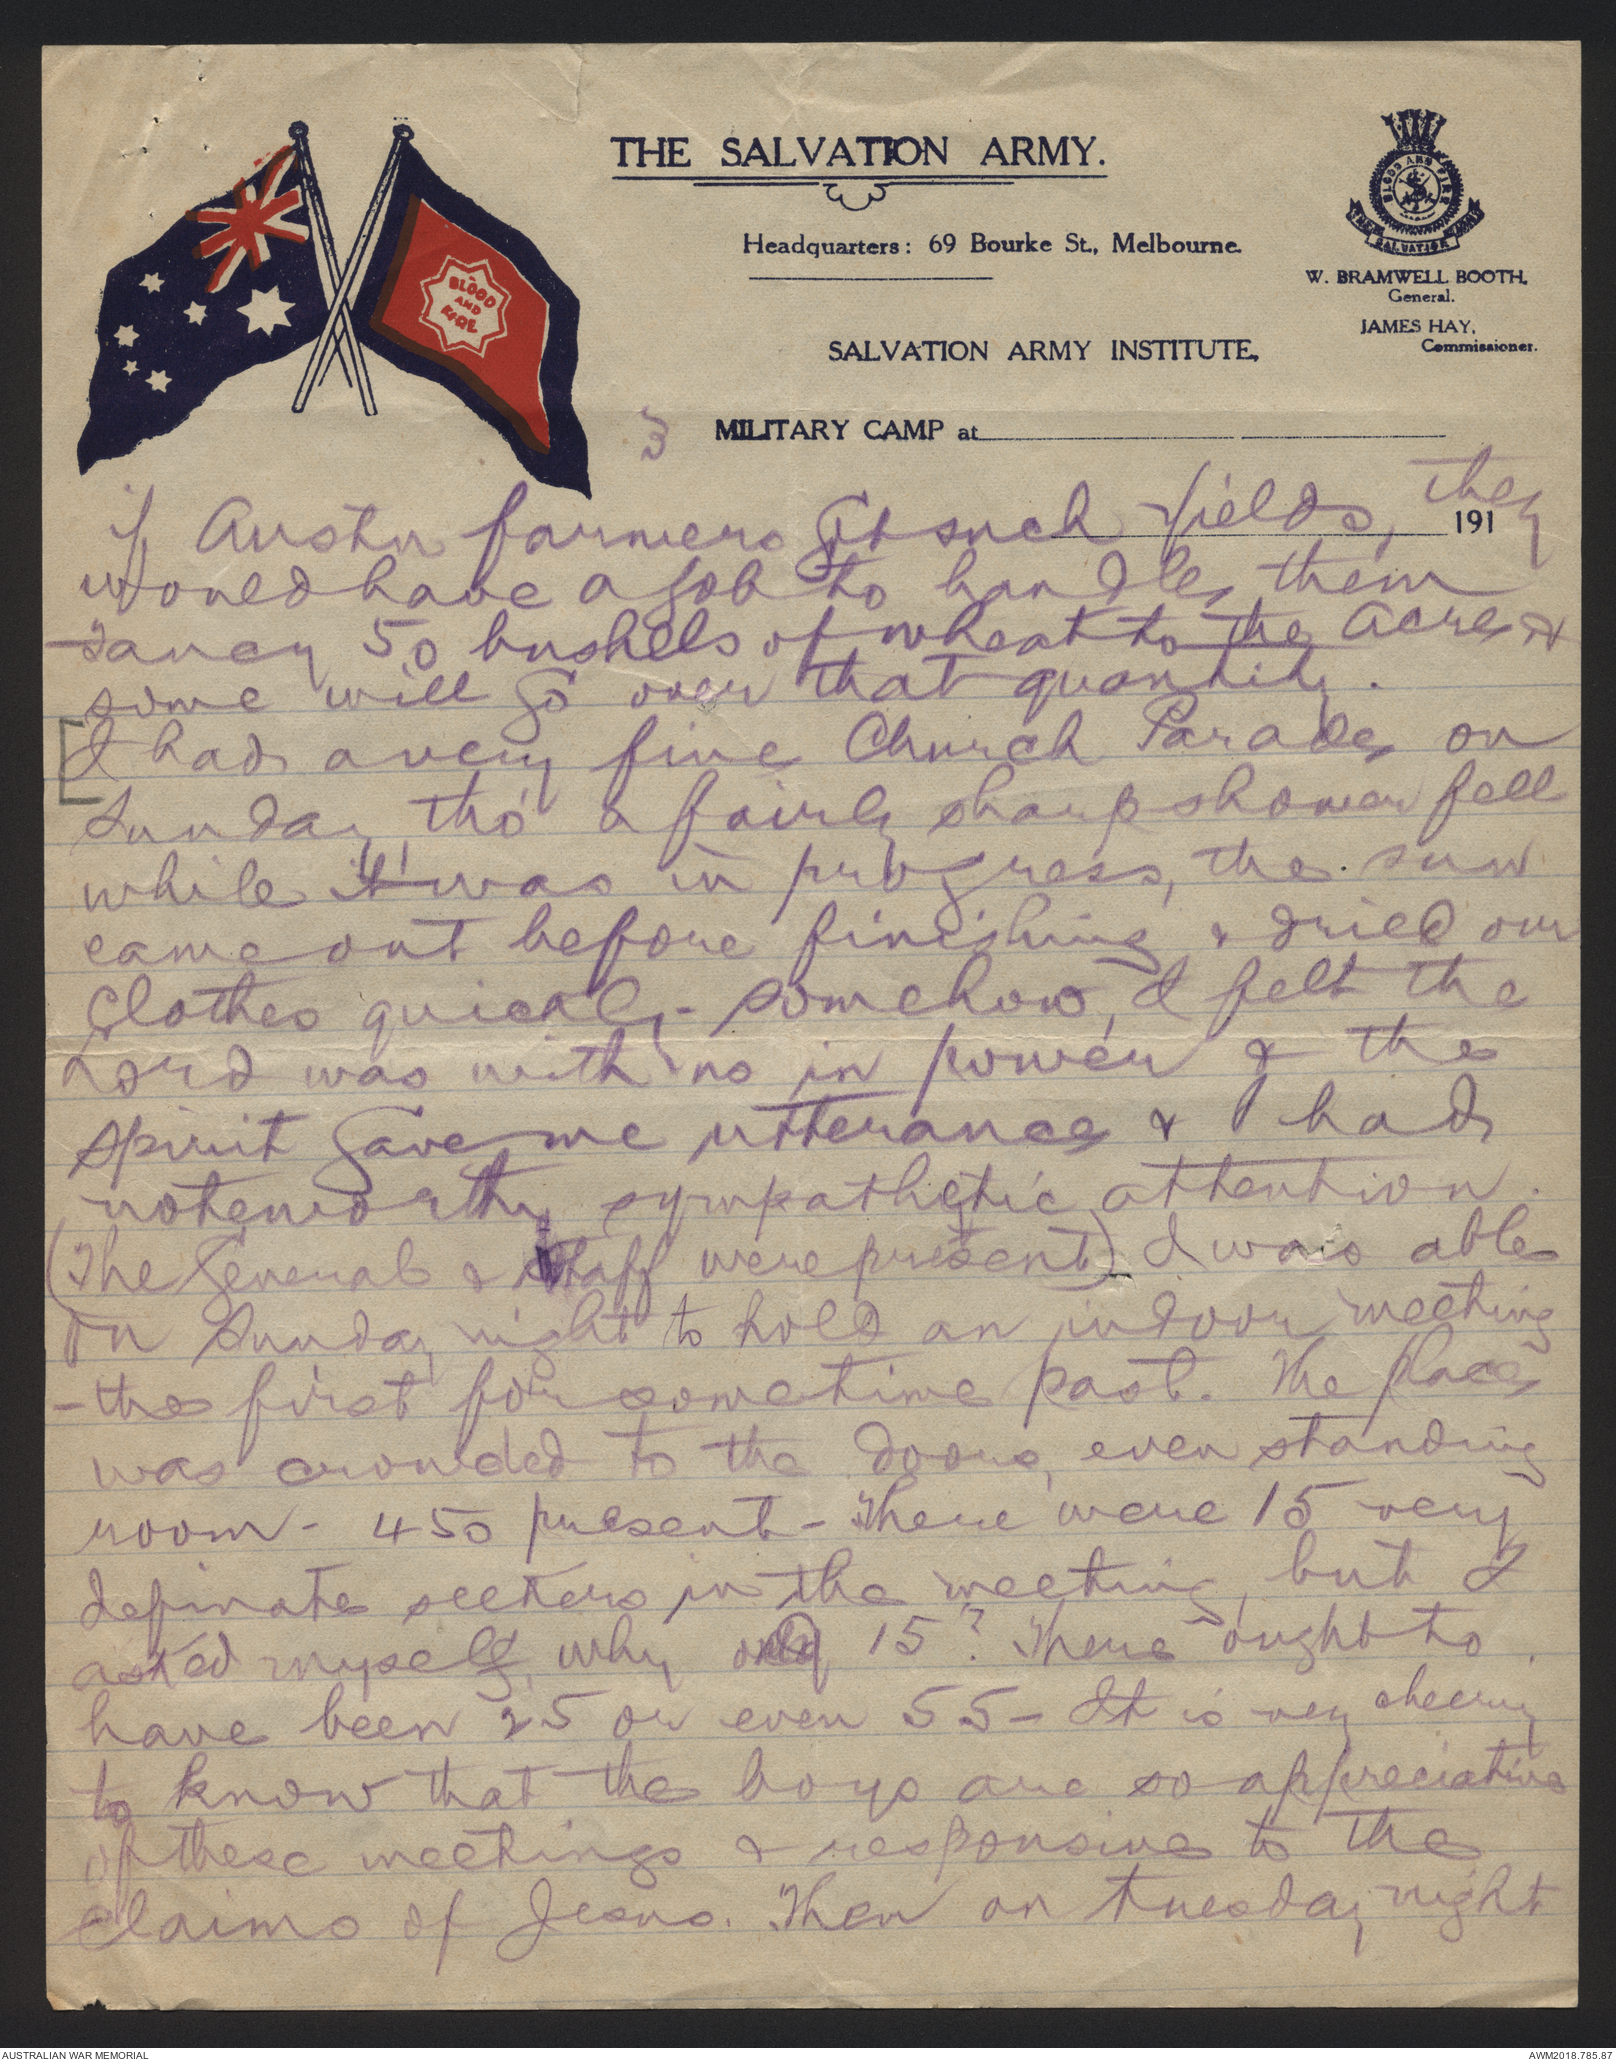 THE SALVATION ARMY.
Headquarters: 69 Bourke St., Melbourne.
BLOOD AND FIRE
THE SALVATION ARMY
W. BRAMWELL BOOTH,
General.
JAMES HAY,
Commissioner.
SALVATION ARMY INSTITUTE,
BLOOD
AND
FIRE
3
MILITARY CAMP at
191
if Austn farmers Got such fields, they
would have a job to handle, them
fancy 50 bushels of wheat to the Acre &
some will Go over that quantity.
[I had a very fine Church Parade, on
Sunday, tho' a fairly sharp shower fell
while it was in progress, the sun
came out before finishing & dried our
Clothes quickly - Somehow, I felt the
Lord was with us in power & the
spirit Gave me utterance & I had
noteworthy sympathetic attention.
(The General & Staff were present) I was able
on Sunday night to hold an indoor meeting
- the first for sometime past. The place
was crowded to the doors, even standing
room - 450 present - There were 15 very
definate seekers in the meeting, but I
asked myself, why only 15? There ought to
have been 25 or even 55 - It is very cheering
to know that the boys are so appreciative
of these meetings & responsive to the
Claims of Jesus. Then on Tuesday night
AUSTRALIAN WAR MEMORIAL
AWM2018.785.87